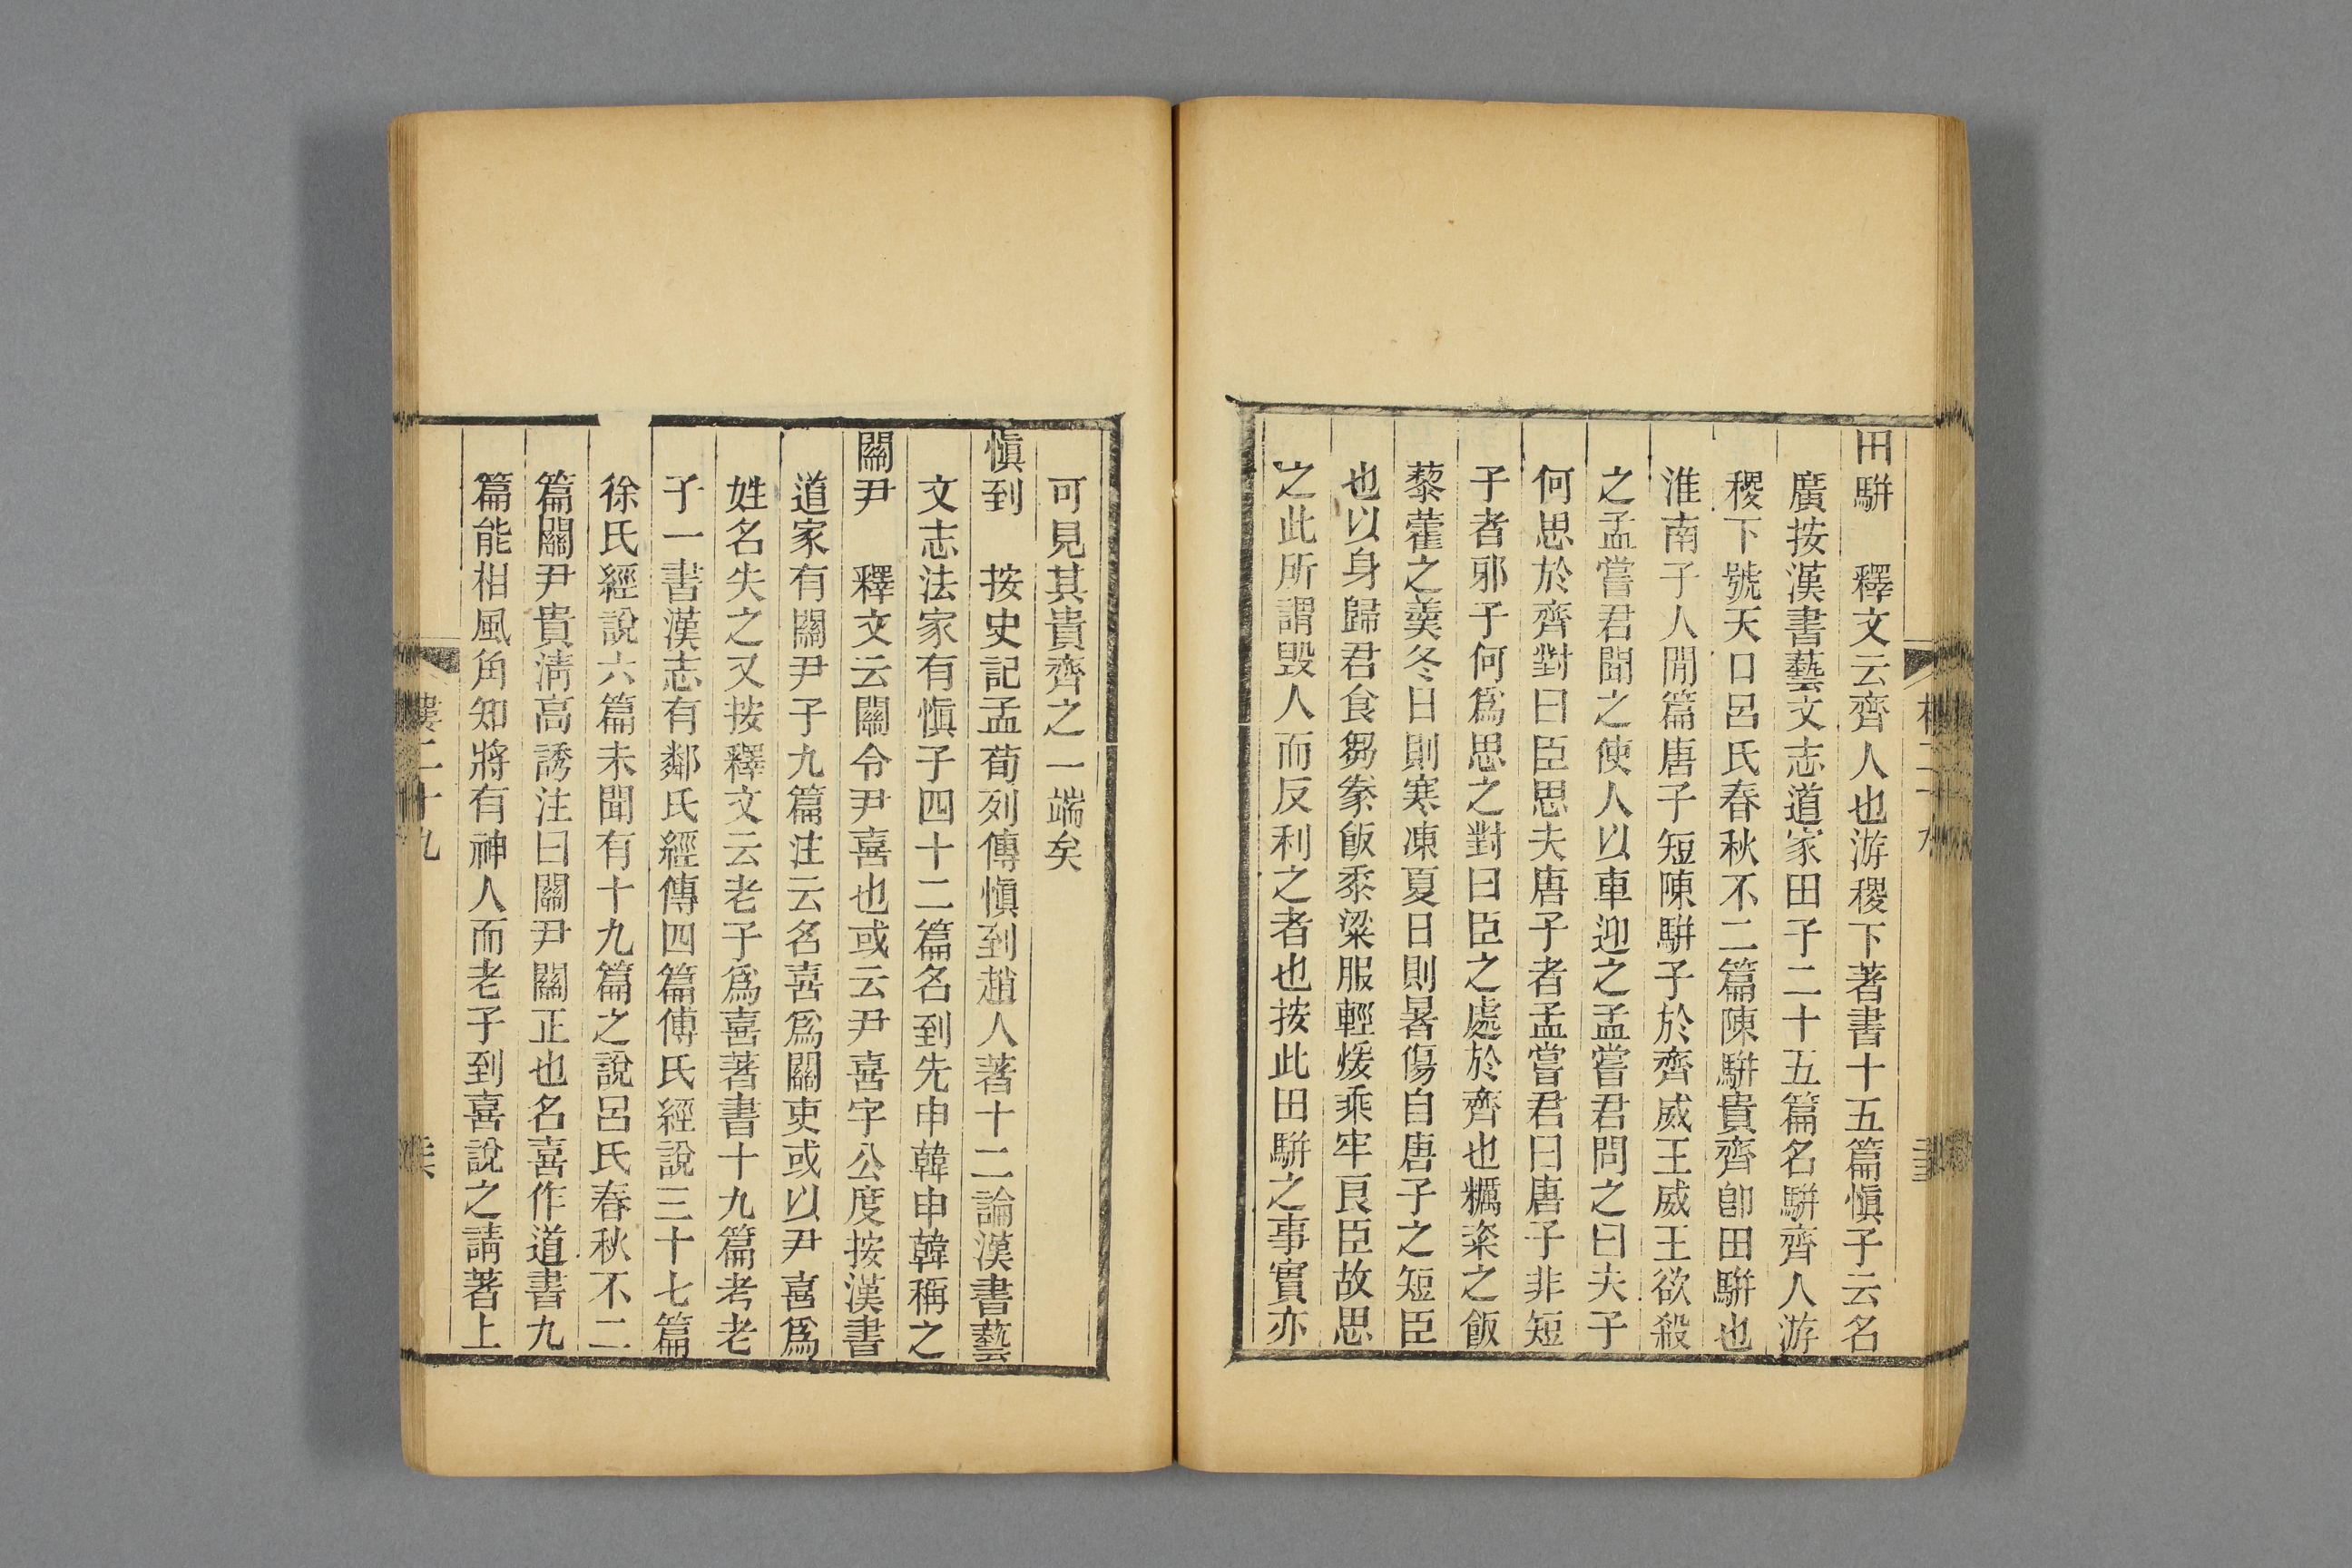 田駢　釋文云齊人也游稷下著書十五篇愼子云名
廣按漢書藝文志道家田子二十五篇名駢齊人游
稷下號天口呂氏春秋不二篇陳駢貴齊卽田駢也
淮南子人閒篇唐子短陳駢子於齊威王威王欲殺
之孟嘗君聞之使人以車迎之孟嘗君問之曰夫子
何思於齊對曰臣思夫唐子者孟嘗君曰唐子非短
子者邪子何爲思之對曰臣之處於齊也糲粢之飯
藜藿之羹冬日則寒凍夏日則暑傷自唐子之短臣
也以身歸君食芻豢飯黍粱服輕煖乘牢良臣故思
之此所謂毀人而反利之者也按此田駢之事實亦
可見其貴齊之一端矣
愼到　按史記孟荀列傳愼到趙人著十二論漢書藝
文志法家有愼子四十二篇名到先申韓申韓稱之
關尹　釋文云關令尹喜也或云尹喜字公度按漢書
道家有關尹子九篇注云名喜爲關吏或以尹喜爲
姓名失之又按釋文云老子爲喜著書十九篇考老
子一書漢志有鄰氏經傳四篇傅氏經說三十七篇
徐氏經說六篇未聞有十九篇之說呂氏春秋不二
篇關尹貴淸高誘注曰關尹關正也名喜作道書九
篇能相風角知將有神人而老子到喜說之請著上
二十九